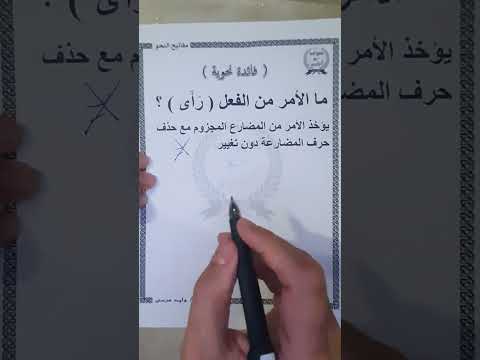 مفاتيح النحو
( فائدة نحوية )
ما الأمر من الفعل ( رَأَى ) ؟
يؤخذ الأمر من المضارع المجزوم مع حذف
حرف المضارعة دون تغيير
يؤخذ الأمر
حرف المضا
وليد مرسي